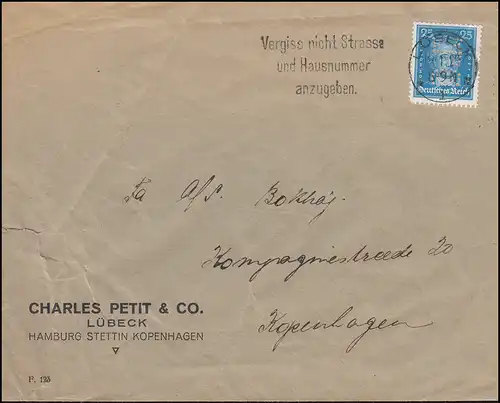 Vergiss nicht Strasse
und Hausnummer
anzugeben.
25 25
Deutsches Reich
Fa A/S. Bokhaj.
Kompagniestræde 20
Kopenhagen
CHARLES PETIT & CO.
LÜBECK
HAMBURG STETTIN KOPENHAGEN
F. 123